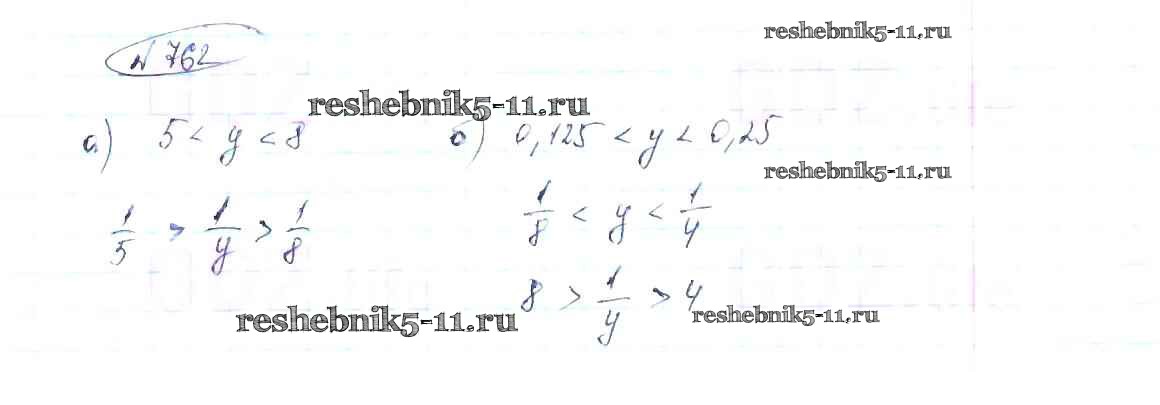 № 762
reshebnik5-11.ru
reshebnik5-11.ru
а) 5 < y < 8
б) 0,125 < y < 0,25
reshebnik5-11.ru
1/5 > 1/y > 1/8
1/8 < y < 1/4
8 > 1/y > 4
reshebnik5-11.ru
reshebnik5-11.ru